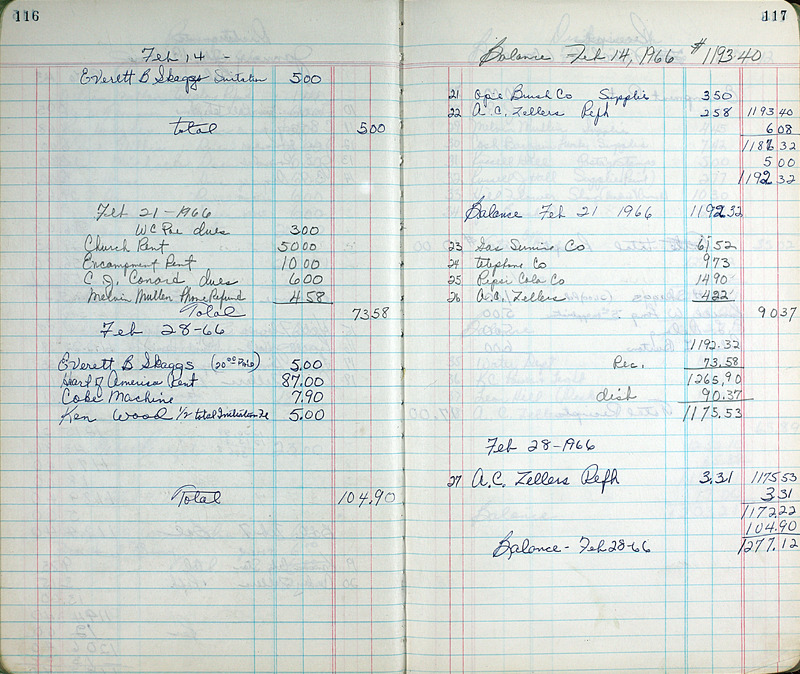 116
Feb 14 -
Everett B Skaggs Initiation 5.00
Total 5.00
Feb 21-1966
WC Poe dues 3 00
Church Rent 50 00
Encampment Rent 10 00
C. J. Conard dues 6 00
Melvin Mullen Phone Refund 4 58
Total 73 58
Feb 28-66
Everett B Skaggs (20 00 Paid) 5.00
Heart of America Rent 87.00
Coke Machine 7.90
Ken Wood 1/2 total Initiation Fe 5.00
Total 104.90
117
Balance Feb 14, 1966 $1193.40
21 Brush Co Supplies 3 50
22 A.C. Zellers Refh 2 58 1193 40
6 08
1187 32
5 00
1192 32
Balance Feb 21 1966 1192.32
23 Gas Co 61 52
24 telephone Co 9 73
25 Pepsi Cola Co 14 90
26 A.C. Zellers 4 22
90 37
1192.32
Rec. 73.58
1265,90
disb 90.37
1175.53
Feb 28-1966
27 A.C. Zellers Refh 3.31 1175 53
3 31
1172.22
104.90
Balance - Feb 28-66 1277.12